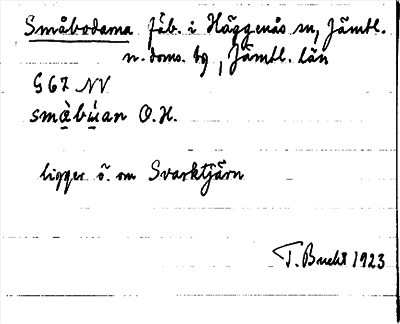 Småbodarna fäb. i Häggenås sn, Jämtl.
n. doms. by, Jämtl. län
G 67 NV
småbuan O.H.
ligger ö. om Svarktjärn
T. Bucht 1923